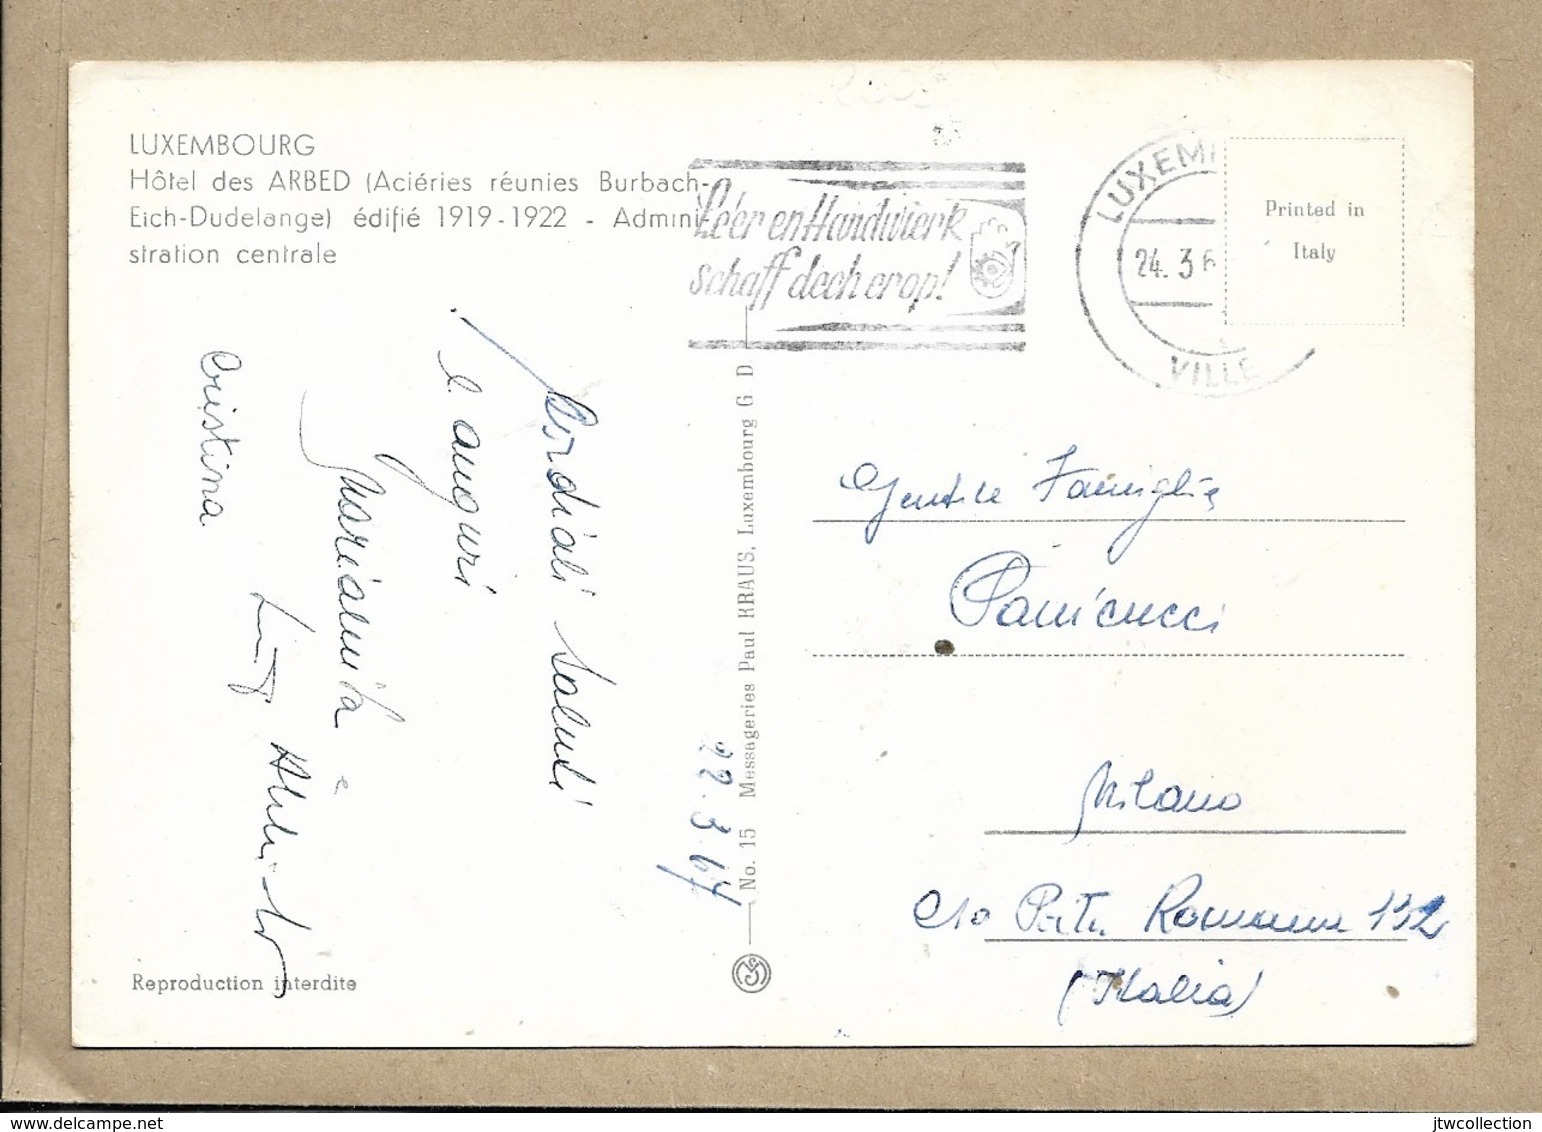 LUXEMBOURG
Hôtel des ARBED (Aciéries réunies Burbach-
Eich-Dudelange) édifié 1919-1922 - Admini-
stration centrale
Léier en Handwierk
schaff dech erop!
LUXEM
24. 3 6
VILLE
Printed in
Italy
Cordiali saluti
e auguri
Mariannita e
Cristina
22.3.67
No. 15 Messageries Paul KRAUS, Luxembourg G D
Gentile Famiglia
Panicucci
Milano
C/so Porta Romana 132
(Italia)
Reproduction interdite
jtwcollection